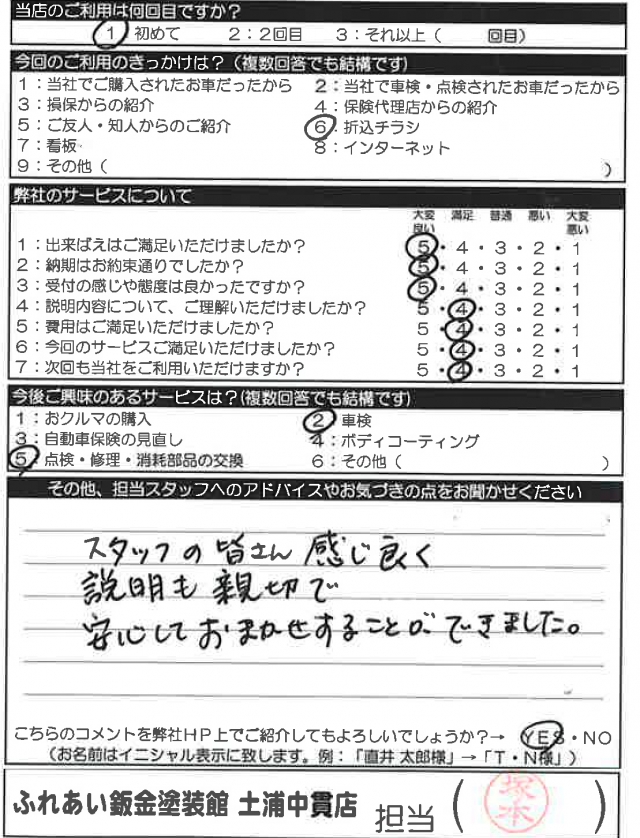 当店のご利用は何回目ですか？
1：初めて　2：2回目　3：それ以上（　　回目）
今回のご利用のきっかけは？（複数回答でも結構です）
1：当社でご購入されたお車だったから　2：当社で車検・点検されたお車だったから
3：損保からの紹介　4：保険代理店からの紹介
5：ご友人・知人からのご紹介　6：折込チラシ
7：看板　8：インターネット
9：その他（　　）
弊社のサービスについて
大変良い　満足　普通　悪い　大変悪い
1：出来ばえはご満足いただけましたか？　5・4・3・2・1
2：納期はお約束通りでしたか？　5・4・3・2・1
3：受付の感じや態度は良かったですか？　5・4・3・2・1
4：説明内容について、ご理解いただけましたか？　5・4・3・2・1
5：費用はご満足いただけましたか？　5・4・3・2・1
6：今回のサービスご満足いただけましたか？　5・4・3・2・1
7：次回も当社をご利用いただけますか？　5・4・3・2・1
今後ご興味のあるサービスは？（複数回答でも結構です）
1：おクルマの購入　2：車検
3：自動車保険の見直し　4：ボディコーティング
5：点検・修理・消耗部品の交換　6：その他（　　）
その他、担当スタッフへのアドバイスやお気づきの点をお聞かせください
スタッフの皆さん 感じ良く
説明も親切で
安心しておまかせすることができました。
こちらのコメントを弊社HP上でご紹介してもよろしいでしょうか？→　YES・NO
（お名前はイニシャル表示に致します。例：「直井 太郎様」→「T・N様」）
ふれあい鈑金塗装館 土浦中貫店　担当（塚本）